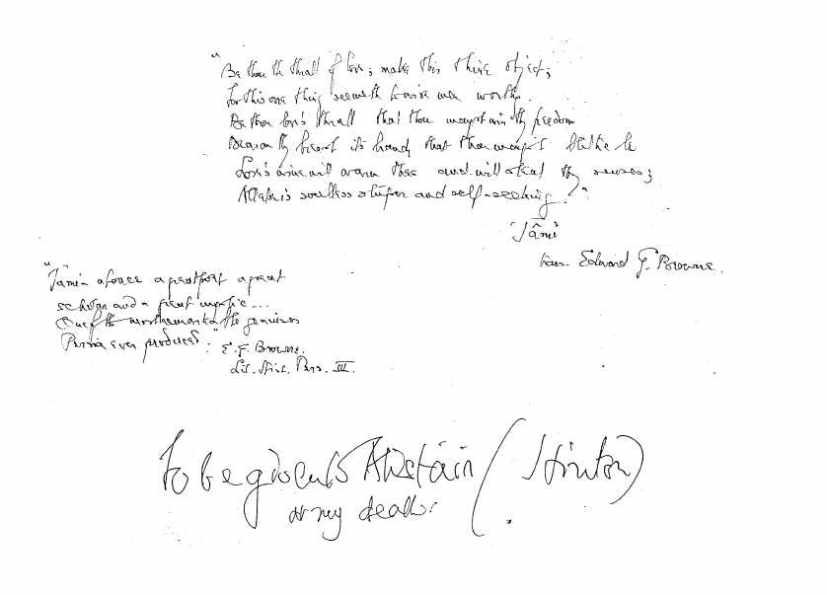 "Be thou the thrall of love; make this thine object;
For this one thing seemeth to wise men worthy.
Be thou love's thrall that thou mayst win thy freedom
Bear on thy breast its brand that thou mayst blithe be
Love's wine will warm thee and will steal thy senses;
All else is soulless stupor and self-seeking."
Jâmî
trans. Edward G. Browne.
"Jâmî at once a great poet a great
scholar and a great mystic...
One of the most remarkable geniuses
Persia ever produced." E.G. Browne.
Lit. Hist. Pers. III.
To be given to Alistair (Hinton)
at my death.